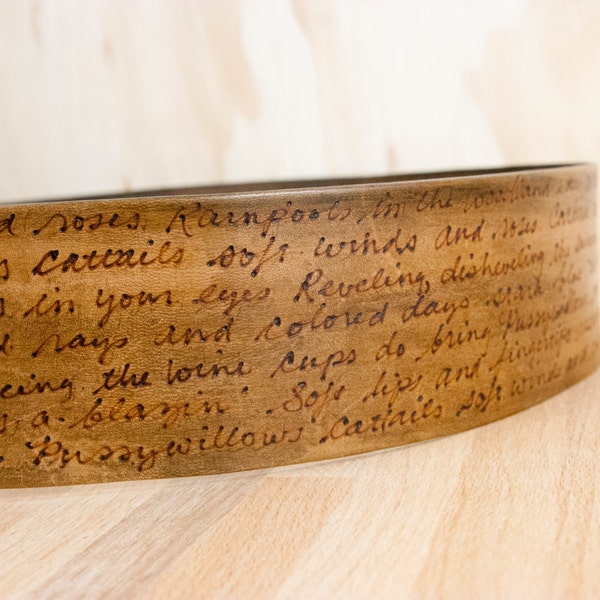 roses Rainpools in the woodland
cattails soft winds and roses
in your eyes Reveling disheveling the
rays and colored days
the wine cups do bring Pussywillows
a-blazin' Soft lips and fingertips
Pussywillows cattails soft winds and